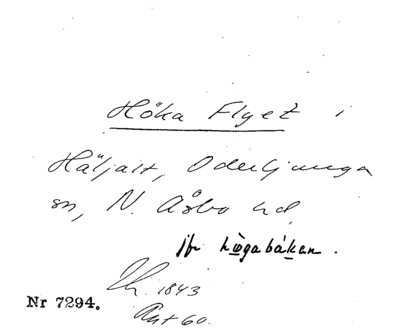 Höka Flyet i
Häljalt, Oderljunga
sn, N. Åsbo hd,
jfr högabákan.
1843
Nr 7294.
60.